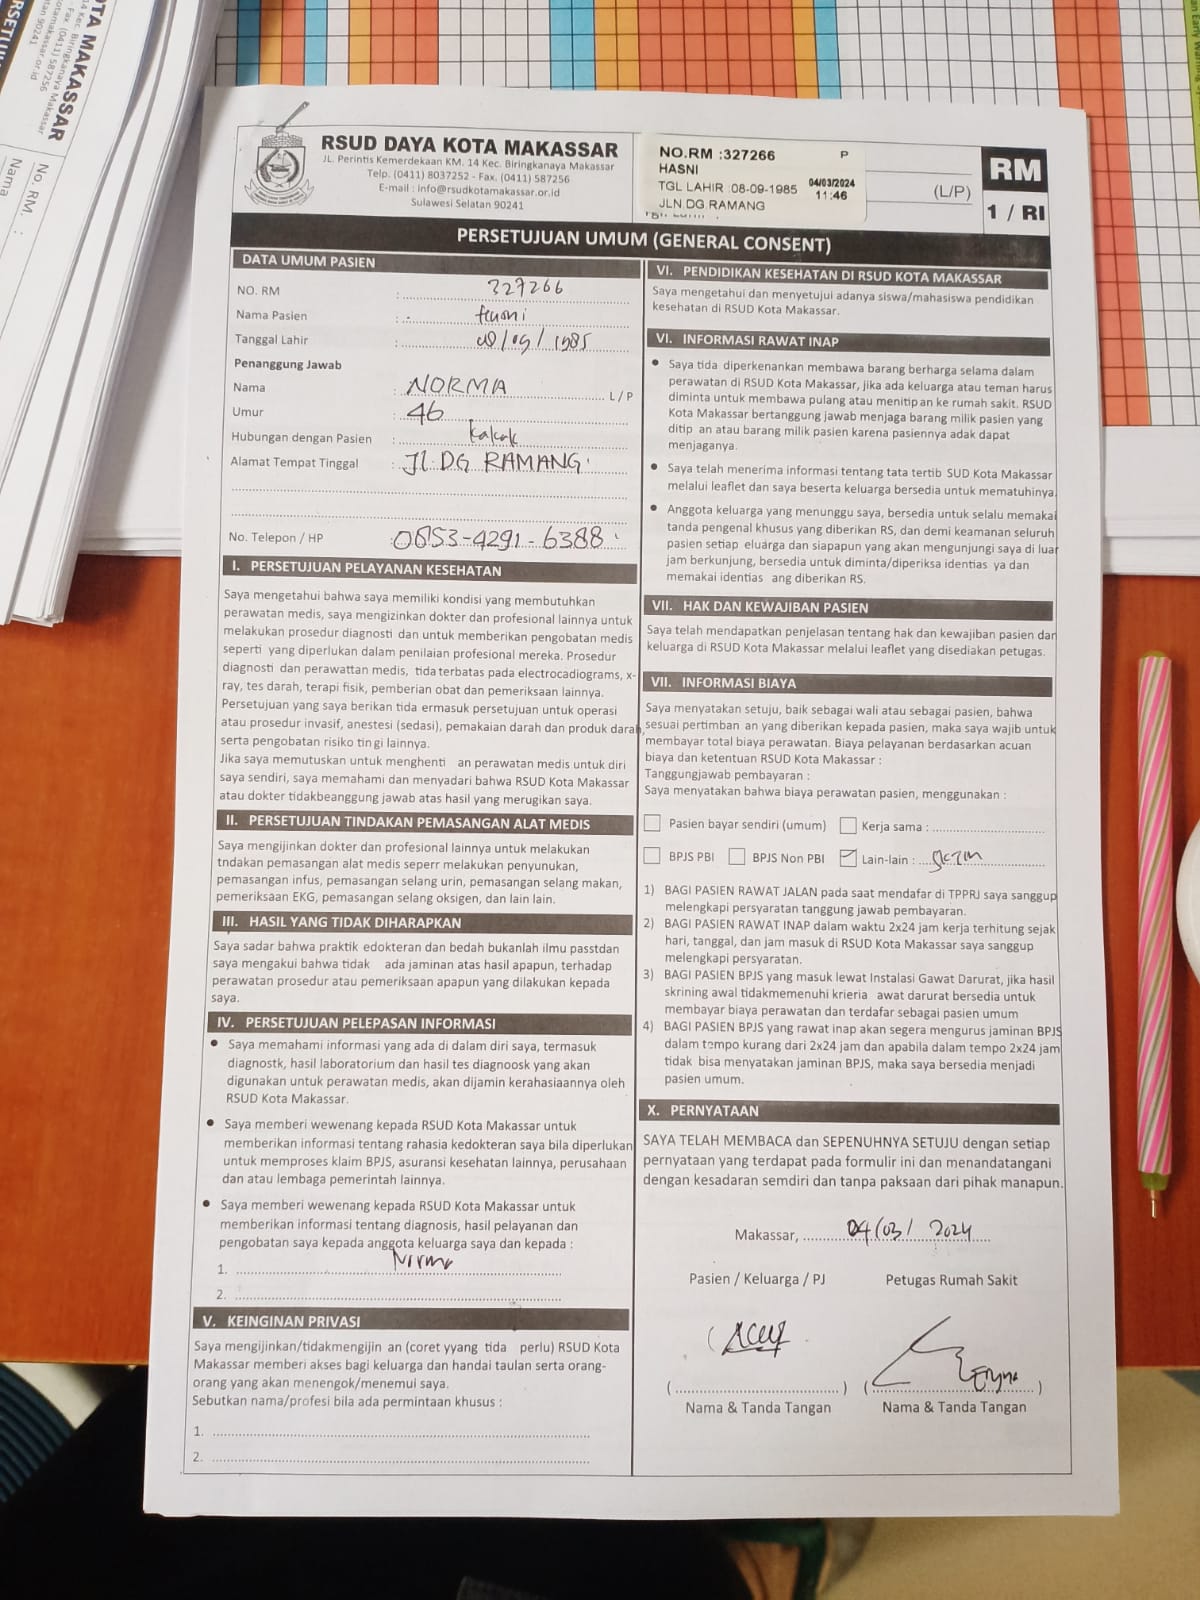 OTA MAKASSAR
14 Kec. Biringkanaya Makassar
- Fax. (0411) 587256
otamakassar.or.id
tan 90241
No. RM. :
Nama
RSUD DAYA KOTA MAKASSAR
JL. Perintis Kemerdekaan KM. 14 Kec. Biringkanaya Makassar
Telp. (0411) 8037252 - Fax. (0411) 587256
E-mail : info@rsudkotamakassar.or.id
Sulawesi Selatan 90241
NO.RM :327266 P
HASNI
TGL LAHIR :08-09-1985 04/03/2024
11:46
JLN.DG.RAMANG
(L/P)
RM
1 / RI
PERSETUJUAN UMUM (GENERAL CONSENT)
DATA UMUM PASIEN
NO. RM : 327266
Nama Pasien :
Tanggal Lahir : 08/09/1985
Penanggung Jawab
Nama : NORMA L / P
Umur : 46
Hubungan dengan Pasien : kakak
Alamat Tempat Tinggal : Jl. DG RAMANG
No. Telepon / HP : 0853-4291-6388
I. PERSETUJUAN PELAYANAN KESEHATAN
Saya mengetahui bahwa saya memiliki kondisi yang membutuhkan
perawatan medis, saya mengizinkan dokter dan profesional lainnya untuk
melakukan prosedur diagnosti dan untuk memberikan pengobatan medis
seperti yang diperlukan dalam penilaian profesional mereka. Prosedur
diagnosti dan perawattan medis, tida terbatas pada electrocadiograms, x-
ray, tes darah, terapi fisik, pemberian obat dan pemeriksaan lainnya.
Persetujuan yang saya berikan tida ermasuk persetujuan untuk operasi
atau prosedur invasif, anestesi (sedasi), pemakaian darah dan produk darah,
serta pengobatan risiko tin gi lainnya.
Jika saya memutuskan untuk menghenti an perawatan medis untuk diri
saya sendiri, saya memahami dan menyadari bahwa RSUD Kota Makassar
atau dokter tidakbeanggung jawab atas hasil yang merugikan saya.
II. PERSETUJUAN TINDAKAN PEMASANGAN ALAT MEDIS
Saya mengijinkan dokter dan profesional lainnya untuk melakukan
tndakan pemasangan alat medis seperr melakukan penyunukan,
pemasangan infus, pemasangan selang urin, pemasangan selang makan,
pemeriksaan EKG, pemasangan selang oksigen, dan lain lain.
III. HASIL YANG TIDAK DIHARAPKAN
Saya sadar bahwa praktik edokteran dan bedah bukanlah ilmu passtdan
saya mengakui bahwa tidak ada jaminan atas hasil apapun, terhadap
perawatan prosedur atau pemeriksaan apapun yang dilakukan kepada
saya.
IV. PERSETUJUAN PELEPASAN INFORMASI
• Saya memahami informasi yang ada di dalam diri saya, termasuk
diagnostk, hasil laboratorium dan hasil tes diagnoosk yang akan
digunakan untuk perawatan medis, akan dijamin kerahasiaannya oleh
RSUD Kota Makassar.
• Saya memberi wewenang kepada RSUD Kota Makassar untuk
memberikan informasi tentang rahasia kedokteran saya bila diperlukan
untuk memproses klaim BPJS, asuransi kesehatan lainnya, perusahaan
dan atau lembaga pemerintah lainnya.
• Saya memberi wewenang kepada RSUD Kota Makassar untuk
memberikan informasi tentang diagnosis, hasil pelayanan dan
pengobatan saya kepada anggota keluarga saya dan kepada :
1. Norma
2.
V. KEINGINAN PRIVASI
Saya mengijinkan/tidakmengijin an (coret yyang tida perlu) RSUD Kota
Makassar memberi akses bagi keluarga dan handai taulan serta orang-
orang yang akan menengok/menemui saya.
Sebutkan nama/profesi bila ada permintaan khusus :
1.
2.
VI. PENDIDIKAN KESEHATAN DI RSUD KOTA MAKASSAR
Saya mengetahui dan menyetujui adanya siswa/mahasiswa pendidikan
kesehatan di RSUD Kota Makassar.
VI. INFORMASI RAWAT INAP
• Saya tida diperkenankan membawa barang berharga selama dalam
perawatan di RSUD Kota Makassar, jika ada keluarga atau teman harus
diminta untuk membawa pulang atau menitip an ke rumah sakit. RSUD
Kota Makassar bertanggung jawab menjaga barang milik pasien yang
ditip an atau barang milik pasien karena pasiennya adak dapat
menjaganya.
• Saya telah menerima informasi tentang tata tertib SUD Kota Makassar
melalui leaflet dan saya beserta keluarga bersedia untuk mematuhinya.
• Anggota keluarga yang menunggu saya, bersedia untuk selalu memakai
tanda pengenal khusus yang diberikan RS, dan demi keamanan seluruh
pasien setiap eluarga dan siapapun yang akan mengunjungi saya di luar
jam berkunjung, bersedia untuk diminta/diperiksa identias ya dan
memakai identias ang diberikan RS.
VII. HAK DAN KEWAJIBAN PASIEN
Saya telah mendapatkan penjelasan tentang hak dan kewajiban pasien dan
keluarga di RSUD Kota Makassar melalui leaflet yang disediakan petugas.
VII. INFORMASI BIAYA
Saya menyatakan setuju, baik sebagai wali atau sebagai pasien, bahwa
sesuai pertimban an yang diberikan kepada pasien, maka saya wajib untuk
membayar total biaya perawatan. Biaya pelayanan berdasarkan acuan
biaya dan ketentuan RSUD Kota Makassar :
Tanggungjawab pembayaran :
Saya menyatakan bahwa biaya perawatan pasien, menggunakan :
Pasien bayar sendiri (umum) Kerja sama :
BPJS PBI BPJS Non PBI Lain-lain :
1) BAGI PASIEN RAWAT JALAN pada saat mendafar di TPPRJ saya sanggup
melengkapi persyaratan tanggung jawab pembayaran.
2) BAGI PASIEN RAWAT INAP dalam waktu 2x24 jam kerja terhitung sejak
hari, tanggal, dan jam masuk di RSUD Kota Makassar saya sanggup
melengkapi persyaratan.
3) BAGI PASIEN BPJS yang masuk lewat Instalasi Gawat Darurat, jika hasil
skrining awal tidakmemenuhi krieria awat darurat bersedia untuk
membayar biaya perawatan dan terdafar sebagai pasien umum
4) BAGI PASIEN BPJS yang rawat inap akan segera mengurus jaminan BPJS
dalam tempo kurang dari 2x24 jam dan apabila dalam tempo 2x24 jam
tidak bisa menyatakan jaminan BPJS, maka saya bersedia menjadi
pasien umum.
X. PERNYATAAN
SAYA TELAH MEMBACA dan SEPENUHNYA SETUJU dengan setiap
pernyataan yang terdapat pada formulir ini dan menandatangani
dengan kesadaran semdiri dan tanpa paksaan dari pihak manapun.
Makassar, 04/03/2024
Pasien / Keluarga / PJ Petugas Rumah Sakit
( ) ( )
Nama & Tanda Tangan Nama & Tanda Tangan